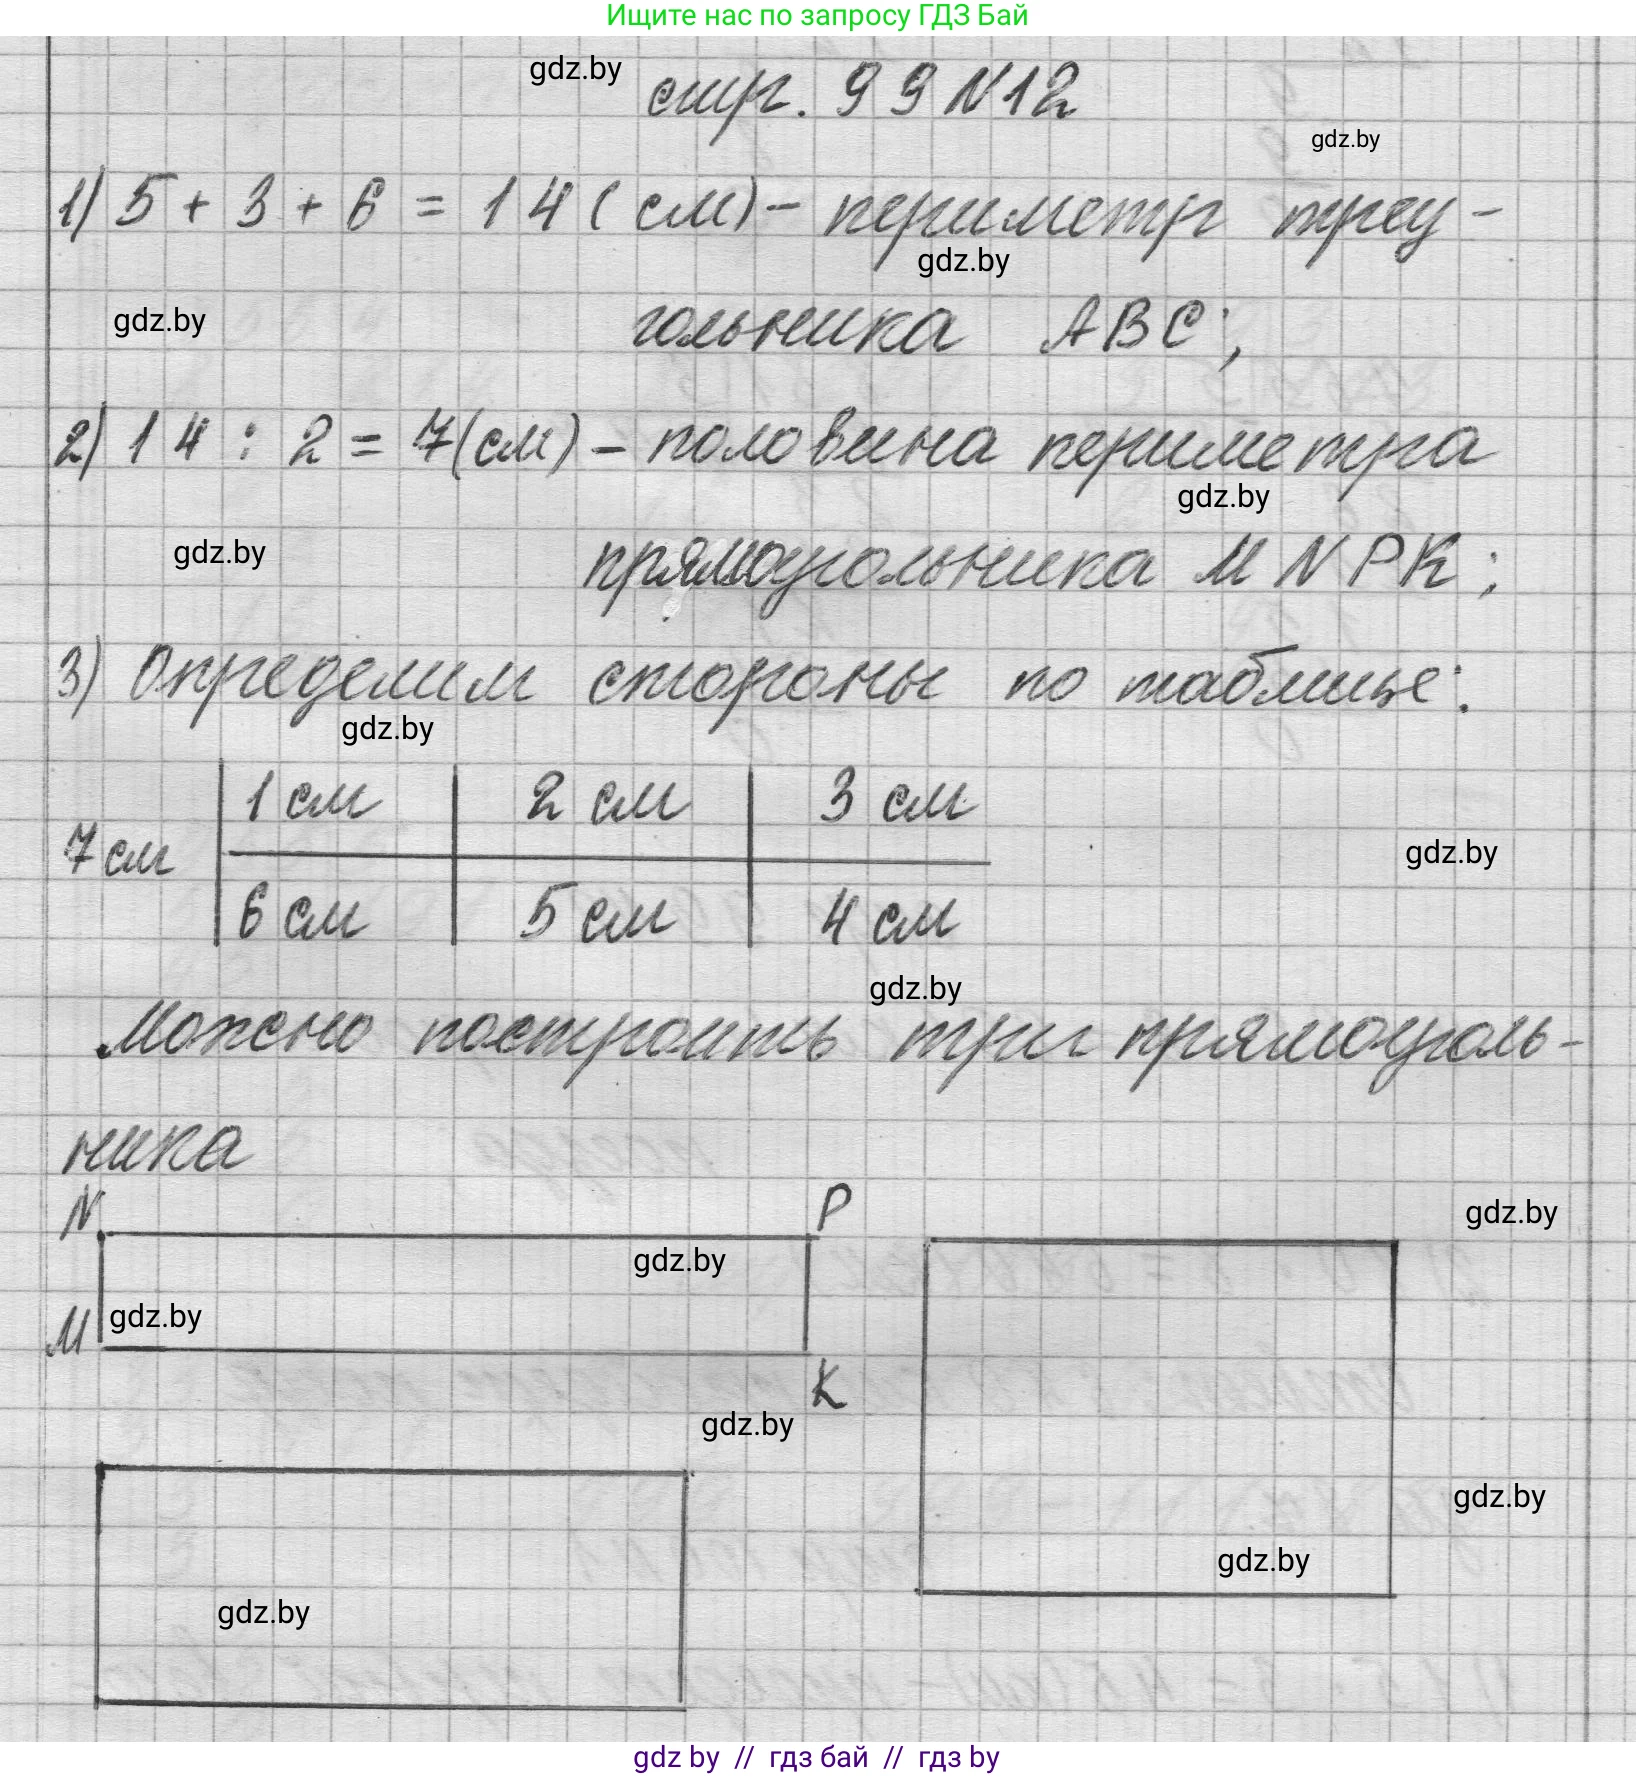 Ищите нас по запросу ГДЗ Бай
gdz.by
стр. 99 N12
gdz.by
1) 5 + 3 + 6 = 14 (см) - периметр треу-
gdz.by
gdz.by
гольника ABC;
2) 14 : 2 = 7 (см) - половина периметра
gdz.by
gdz.by
прямоугольника MNPK;
3) Определим стороны по таблице:
gdz.by
1 см 2 см 3 см
7 см
gdz.by
6 см 5 см 4 см
gdz.by
Можно построить три прямоуголь-
ника
N P
gdz.by
gdz.by
M gdz.by
K
gdz.by
gdz.by
gdz.by
gdz.by
gdz by // гдз бай // гдз by